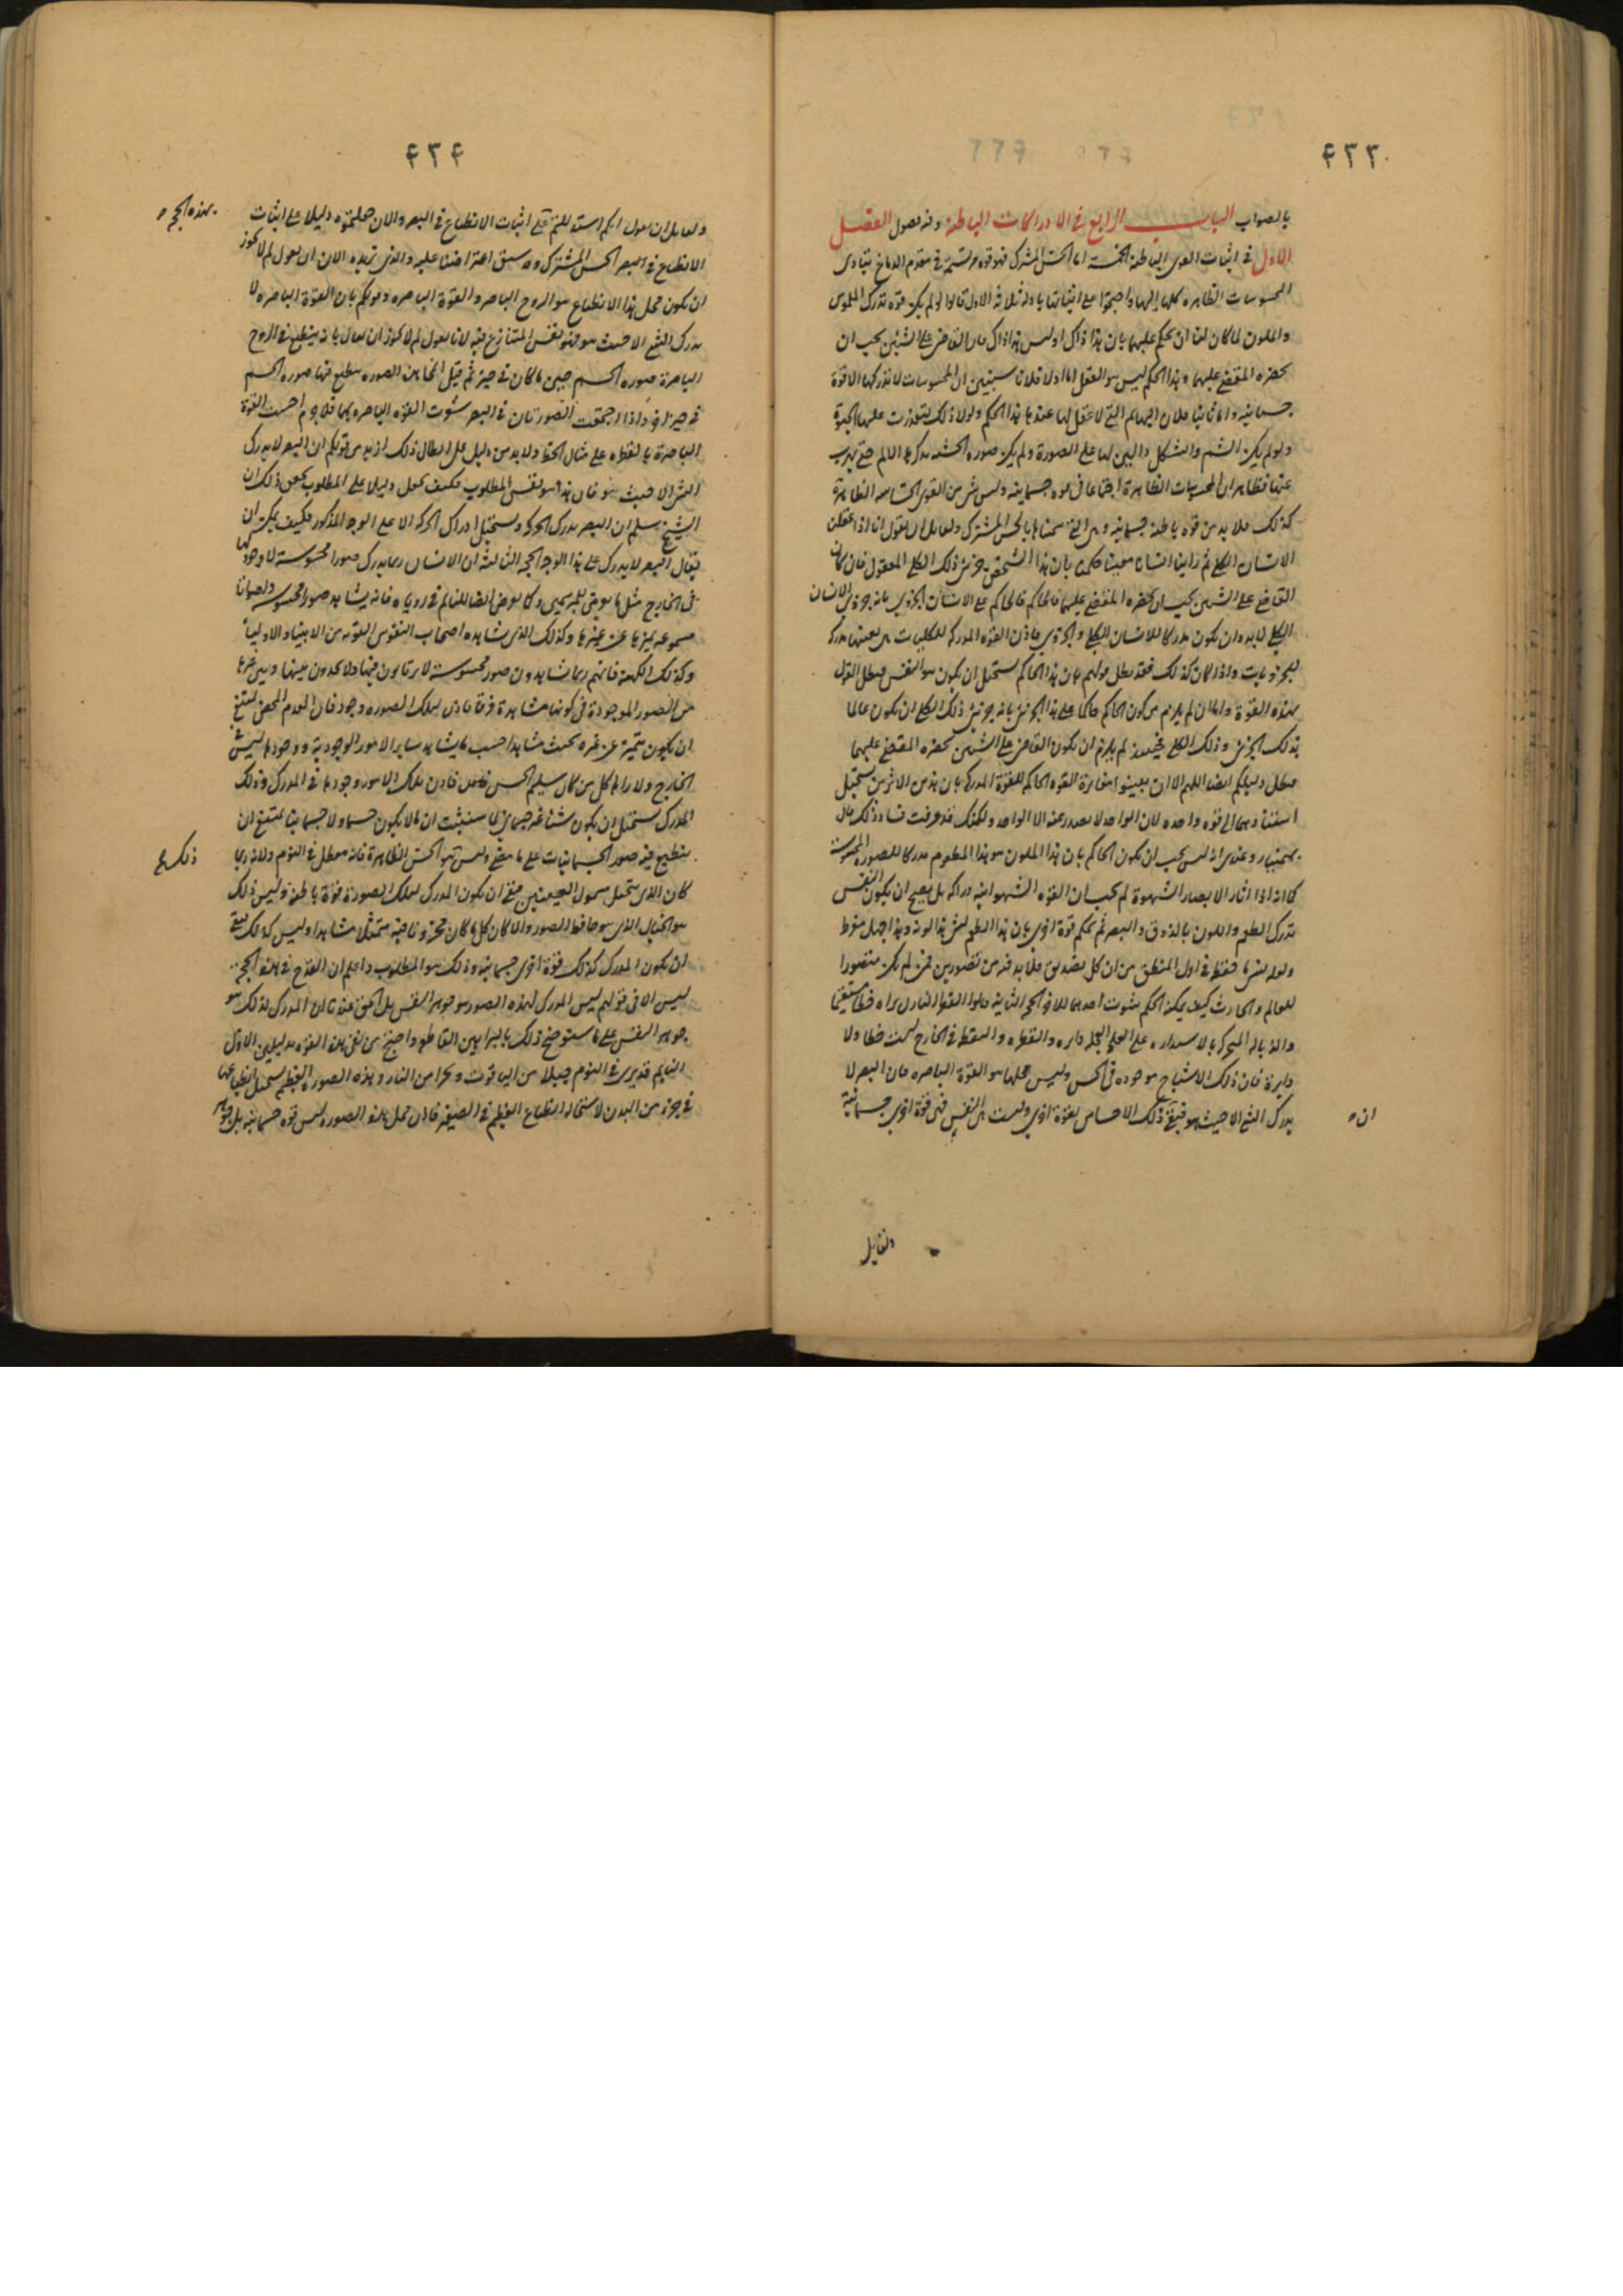 ٤٣٣
بالصواب الباب الرابع في الادراكات الباطنة وفيه فصول الفصل
الاول في اثبات القوى الباطنة الخمسة اما الحس المشترك فهو قوة مرتبة في مقدم الدماغ تتادى
المحسوسات الظاهرة كلها اليها واحتجوا على اثباتها بادلة ثلاثة الاول قالوا لو لم يكن قوة تدرك الملموس
والملون لما كان لنا ان نحكم عليهما بان هذا ذاك او ليس هذا ذاك فان القاضي على الشيئين يجب ان
يحضره المقضي عليهما وهذا الحكم ليس هو العقل اما اولا فلانا سنبين ان المحسوسات لا تدركها الا قوة
جسمانية واما ثانيا فلان البهايم التي لا عقل لها عندها هذا الحكم ولولا ذلك لتعذرت عليها الحيوة
ولو لم يكن الشم والشكل دالين لها على الصورة ولم يكن صورة الخشبة تذكرها الالم حتى تهرب
عنها فظاهر ان للمحسوسات الظاهرة اجتماعا في قوة جسمانية وليس شئ من القوى الحساسة الظاهرة
كذلك فلا بد من قوة باطنة جسمانية وهي التي سميناها بالحس المشترك ولقائل ان يقول انا اذا عقلنا
الانسان الكلي ثم راينا انسانا معينا حكمنا بان هذا الشخص جزئي ذلك الكلي المعقول فان كان
القاضي على الشيئين يجب ان يحضره المقضي عليهما فالحاكم على الانسان الجزوي بانه جزوي الانسان
الكلي لا بد وان يكون مدركا للانسان الكلي والجزوي فاذن القوة المدركة للكليات هي بعينها مدركة
للجزويات واذا كان كذلك فقد بطل قولهم بان هذا الحاكم يستحيل ان يكون هو النفس فبطل القول
بهذه القوة واما ان لم يلزم من كون الحاكم حاكما على هذا الجزئي بانه جزئي ذلك الكلي ان يكون عالما
بذلك الجزئي وذلك الكلي فحينئذ لم يلزم ان يكون القاضي على الشيئين يحضره المقضي عليهما
فبطل دليلكم ايضا اللهم الا ان يبينوا مغايرة القوة الحاكمة للقوة المدركة بان هذين الاثرين يستحيل
استنادهما الى قوة واحدة لان الواحد لا يصدر عنه الا الواحد ولكنك قد عرفت فساد ذلك
وعندى انه ليس يجب ان يكون الحاكم بان هذا الملون هو هذا المطعوم مدركا للصورة المحسوسة
كما انه اذا اثار الابصار الشهوة لم يجب ان القوة الشهوانية دراكة بل يصح ان يكون النفس
تدرك الطعم واللون بالذوق والبصر ثم تحكم قوة اخرى بان هذا الطعم لهذا اللون وهذا جهل مفرط
في اول المنطق من ان كل تصديق فلا بد فيه من تصورين فمن لم يكن متصورا
للعالم والحادث كيف يمكنه الحكم بثبوت احدهما للاخر الحجة الثانية قالوا القطر النازل يراه خطا مستقيما
والذبالة المتحركة بالاستدارة على العجلة دايرة والقطرة والنقطة في الخارج ليست خطا ولا
دايرة فان ذلك الاشباح موجودة في الحس وليس محلها هو القوة الباصرة فان البصر لا
يدرك الشئ الا حيث هو فبقي ذلك الاحساس بقوة اخرى وليست هي النفس فهي قوة اخرى جسمانية
ان
ولقايل
٤٣٤
ولقائل ان يقول انكم استدللتم على اثبات الانطباع في البصر والان جعلتموه دليلا على اثبات
بهذه الحجة
الانطباع في الحس المشترك وقد سبق اعتراضنا عليه والذي نريده الان ان نقول لم لا يجوز
ان يكون محل هذا الانطباع هو الروح الباصر والقوة الباصرة وقولكم بان القوة الباصرة لا
تدرك الشئ الا حيث هو فهو نفس المتنازع فيه لانا نقول لم لا يجوز ان يقال بانه ينطبع في الروح
الباصرة صورة الجسم حين ما كان في حيز ثم قبل انمحاء هذه الصورة ينطبع فيها صورة الجسم
في حيز اخر واذا اجتمعت الصورتان في البصر شعرت القوة الباصرة بهما فلا جرم احست القوة
الباصرة بالنقطة على مثال الخط ولا بد من دليل على ابطال ذلك ازيد من قولكم ان البصر لا يدرك
الشئ الا حيث هو فان هذا هو نفس المطلوب فكيف يجعل دليلا على المطلوب يحقق ذلك ان
الشيخ سلم ان البصر يدرك الحركة ويستحيل ادراك الحركة الا على الوجه المذكور فكيف يمكن ان
يقال البصر لا يدرك على هذا الوجه الحجة الثالثة ان الانسان ربما يدرك صورا محسوسة لا وجود لها
في الخارج مثل ما يعرض للمبرسمين وكما يعرض ايضا للنائم في روياه فانه يشاهد صورا محسوسة واصواتا
مسموعة يميزها عن غيرها وكذلك الذي تشاهده اصحاب النفوس القوية من الانبياء والاوليا
وكذلك الكهنة فانهم ربما شاهدون صورا محسوسة لا يرتابون فيها ولا يجدون بينها وبين غيرها
من الصور الموجودة في كونها مشاهدة فرقا فاذن لتلك الصورة وجود فان العدم المحض يمتنع
ان يكون متميزا عن غيره بحيث يشاهد حسب ما يشاهد ساير الامور الوجودية ووجودها ليس في
الخارج ولا رآها كل من كان سليم الحس فاذن تلك الامور وجودها في المدرك وذلك
المدرك يستحيل ان يكون شيئا غير جسماني لما سنثبت ان ما لا يكون جسما ولا جسمانيا يمتنع ان
ذلك
ينطبع فيه صور الجسمانيات على ما مضى وليس هو الحس الظاهر فانه معطل في النوم ولانه ربما
كان الذي يتخيل مسمول العينين فبقي ان يكون المدرك لتلك الصورة قوة باطنة وليس ذلك
هو الخيال الذي هو حافظ الصور والا كان كل ما كان مخزونا فيه متمثلا مشاهدا وليس كذلك فبقي
ان يكون المدرك كذلك قوة اخرى جسمانية وذلك هو المطلوب واعلم ان القدح في هذه الحجة
ليس الا في قولهم ليس المدرك لهذه الصور هو جوهر النفس بل الحق عندنا ان المدرك لذلك هو
جوهر النفس على ما سنوضح ذلك بالبراهين القاطعة واحتج من نفى هذه القوة بدليلين الاول
النايم قد يرى في النوم جبلا من الياقوت وبحرا من النار وهذه الصورة العظيمة يستحيل انطباعها
في جزء من البدن لاستحالة انطباع العظيم في الصغير فاذن محل هذه الصورة ليس قوة جسمانية بل جوهر